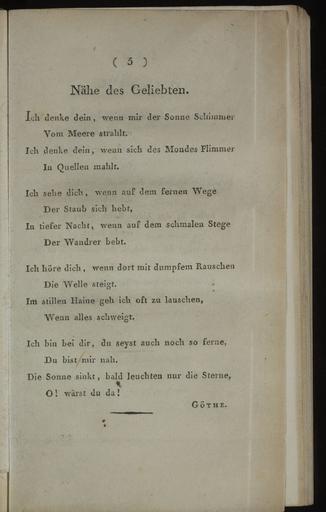 ( 5 )
Nähe des Geliebten.
Ich denke dein, wenn mir der Sonne Schimmer
Vom Meere strahlt.
Ich denke dein, wenn sich des Mondes Flimmer
In Quellen mahlt.
Ich sehe dich, wenn auf dem fernen Wege
Der Staub sich hebt,
In tiefer Nacht, wenn auf dem schmalen Stege
Der Wandrer bebt.
Ich höre dich, wenn dort mit dumpfem Rauschen
Die Welle steigt.
Im stillen Haine geh ich oft zu lauschen,
Wenn alles schweigt.
Ich bin bei dir, du seyst auch noch so ferne,
Du bist mir nah.
Die Sonne sinkt, bald leuchten nur die Sterne,
O! wärst du da!
GÖTHE.